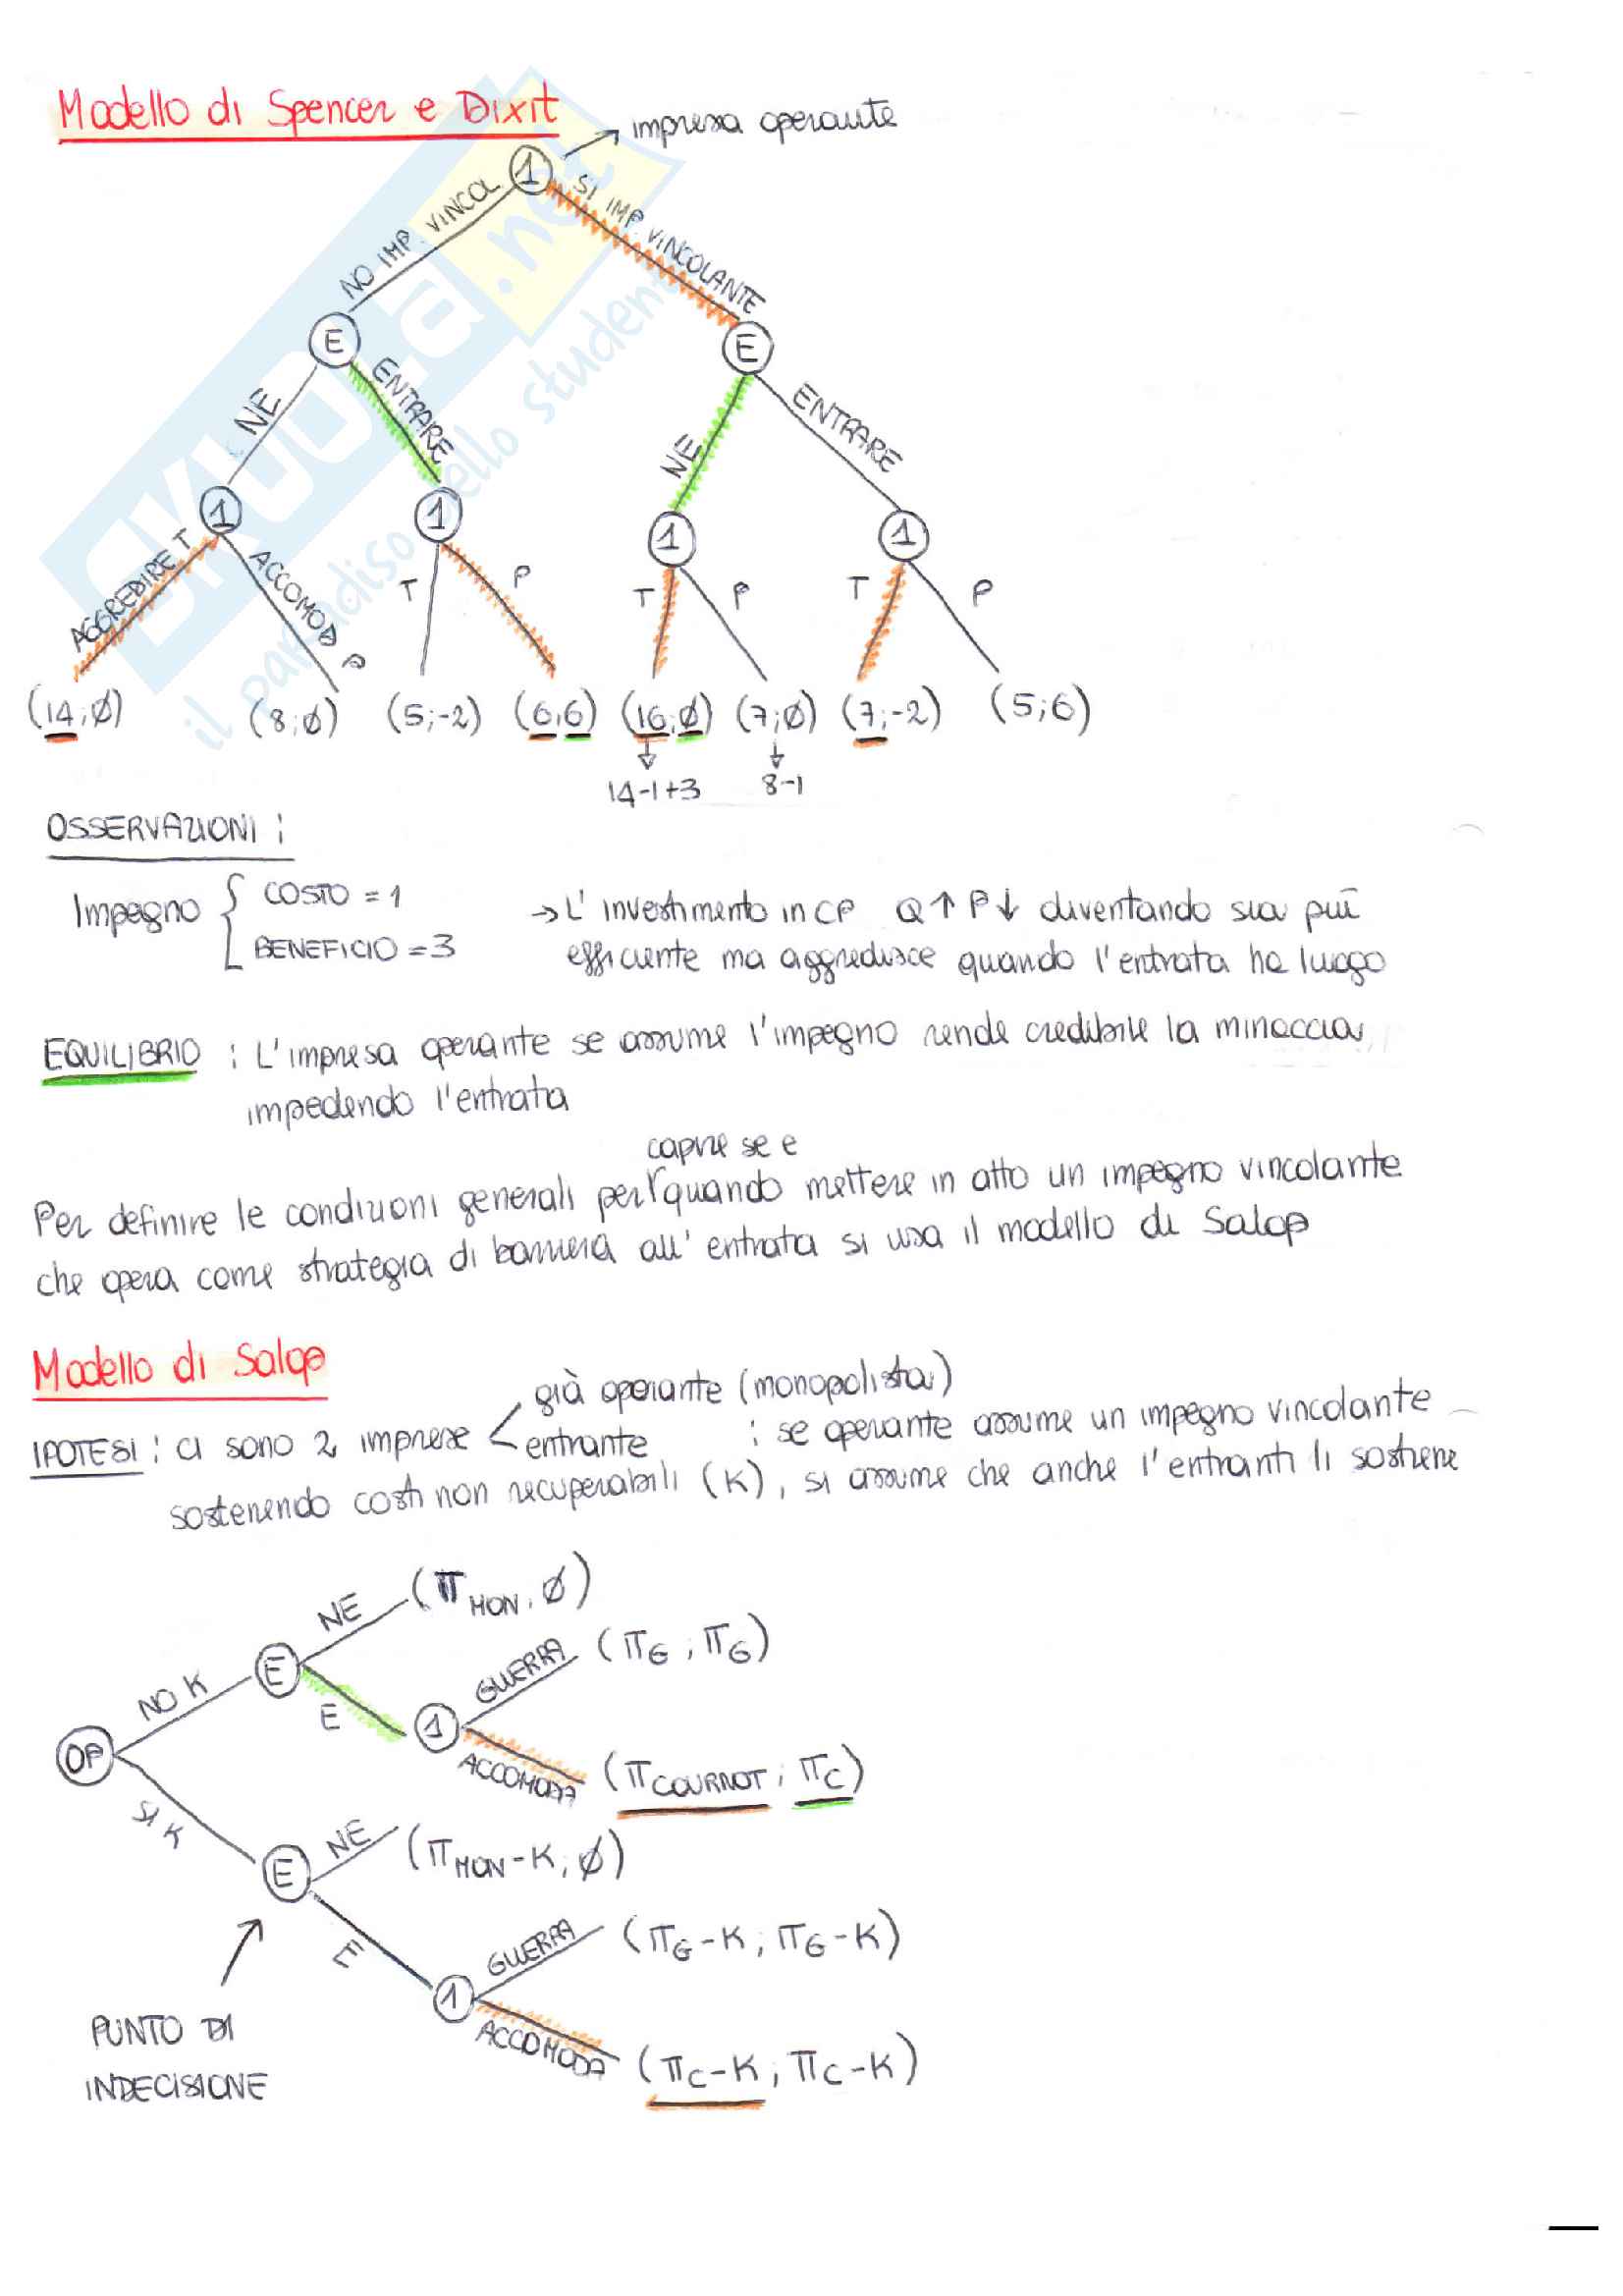 Modello di Spencer e Dixit
impresa operante
1
NO IMP. VINCOL
SI IMP. VINCOLANTE
E
E
NE
ENTRARE
NE
ENTRARE
1
1
1
1
AGGREDIRE T
ACCOMOD P
T
P
T
P
T
P
(14;Ø) (8;Ø) (5;-2) (6,6) (16;Ø) (7;Ø) (7;-2) (5;6)
14-1+3
8-1
OSSERVAZIONI :
Impegno { COSTO = 1
BENEFICIO = 3
→ L' investimento in CP Q↑ P↓ diventando sia più
efficiente ma aggredisce quando l'entrata ha luogo
EQUILIBRIO : L'impresa operante se assume l'impegno rende credibile la minaccia
impedendo l'entrata
capire se e
Per definire le condizioni generali per quando mettere in atto un impegno vincolante
che opera come strategia di barriera all' entrata si usa il modello di Salop
Modello di Salop
IPOTESI : ci sono 2 imprese < già operante (monopolista)
entrante : se operante assume un impegno vincolante
sostenendo costi non recuperabili (K), si assume che anche l'entranti li sostiene
NE (πMON, Ø)
E
NO K
E
1
GUERRA (πG ; πG)
ACCOMODA (πCOURNOT ; πC)
OP
SI K
E
NE (πMON-K; Ø)
E
1
GUERRA (πG-K ; πG-K)
ACCOMODA (πC-K ; πC-K)
PUNTO DI
INDECISIONE
SKUOLA.net
il paradiso dello studente